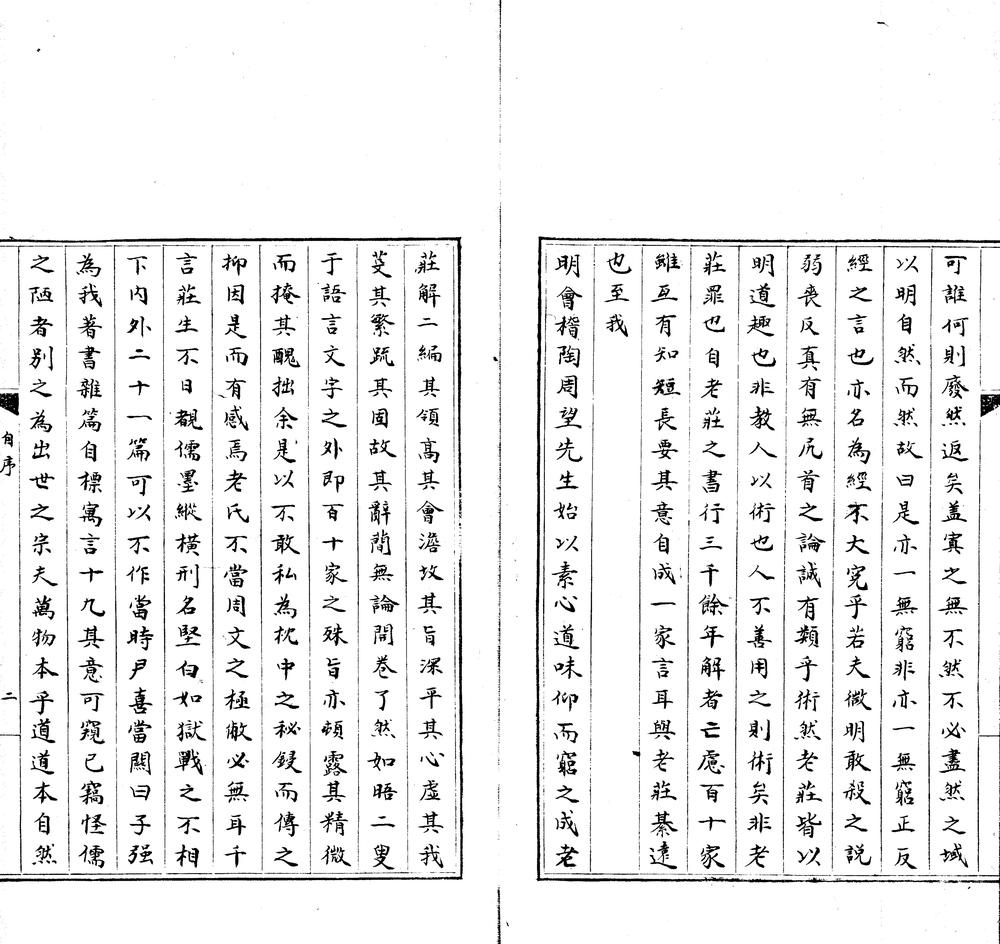 可誰何則廢然返矣盖寘之無不然不必盡然之域
以明自然而然故曰是亦一無窮非亦一無窮正反
經之言也亦名為經不大究乎若夫微明敢殺之説
弱喪反真有無尻首之論誠有類乎術然老莊皆以
明道趣也非教人以術也人不善用之則術矣非老
莊罪也自老莊之書行三千餘年解者亡慮百十家
雖互有知短長要其意自成一家言耳與老莊綦逺
也至我
明會稽陶周望先生始以素心道味仰而窮之成老
莊解二編其領髙其會澹故其旨深平其心虛其我
芟其繁䟽其固故其辭蕳無論開卷了然如晤二叟
于語言文字之外即百十家之殊旨亦頓露其精微
而掩其醜拙余是以不敢私為枕中之秘鋟而傳之
抑因是而有感焉老氏不當周文之極敝必無耳千
言莊生不日覩儒墨縱横刑名堅白如獄戰之不相
下内外二十一篇可以不作當時尹喜當關曰子强
為我著書雜篇自標寓言十九其意可窺已竊怪儒
之陋者别之為出世之宗夫萬物本乎道道本自然
自序
二